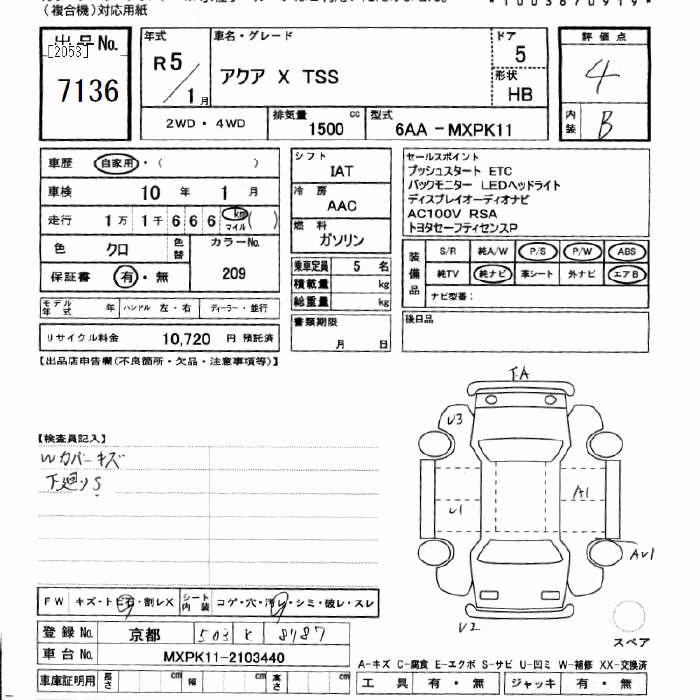 (複合機)対応用紙
*1003670919*
出品No.
[2053]
7136
年式
R5/1月
車名・グレード
アクア X TSS
ドア
5
形状
HB
2WD・4WD
排気量
1500 cc
型式
6AA-MXPK11
評価点
4
内装
B
車歴 自家用・( )
車検 10年 1月
走行 1万1千666 km マイル ( )
色 クロ 色替
カラーNo.
209
保証書 有・無
モデル年式 年 ハンドル 左・右 ディーラー・並行
リサイクル料金 10,720 円 預託済
シフト
IAT
冷房
AAC
燃料
ガソリン
乗車定員 5 名
積載量 kg
総重量 kg
書類期限
月 日
セールスポイント
プッシュスタート ETC
バックモニター LEDヘッドライト
ディスプレイオーディオナビ
AC100V RSA
トヨタセーフティセンスP
装備品
S/R 純A/W P/S P/W ABS
純TV 純ナビ 革シート 外ナビ エアB
ナビ型番:
後日品
【出品店申告欄(不良箇所・欠品・注意事項等)】
【検査員記入】
Wカバーキズ
下廻りS
FA
V3
U1
A1
AV1
V2
スペア
FW キズ・トビ石・割レX シート内装 コゲ・穴・汚レ・シミ・破レ・スレ
登録No. 京都 503 8187
車台No. MXPK11-2103440
車庫証明用 長さ cm 幅 cm 高さ cm
A-キズ C-腐食 E-エクボ S-サビ U-凹ミ W-補修 XX-交換済
工具 有・無 ジャッキ 有・無